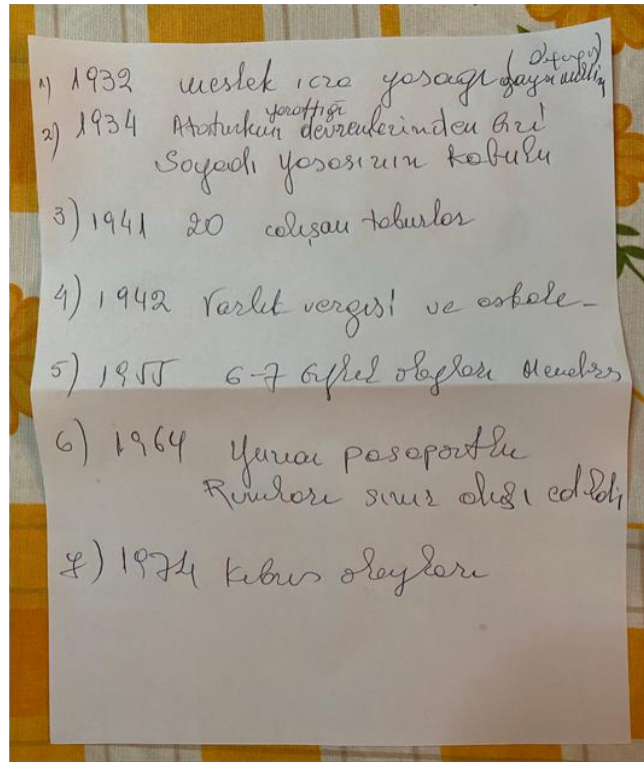 1) 1932 meslek icra yasağı (gayrimüslim
2) 1934 Atatürkün yarattığı devrenlerinden biri
Soyadı yasasının kabulu
3) 1941 20 calışan taburlar
4) 1942 Varlık vergisi ve aşkale -
5) 1955 6-7 eylul olayları Menderes
6) 1964 Yunan pasaportlu
Rumları sınır dışı edildi
7) 1974 Kıbrıs olayları